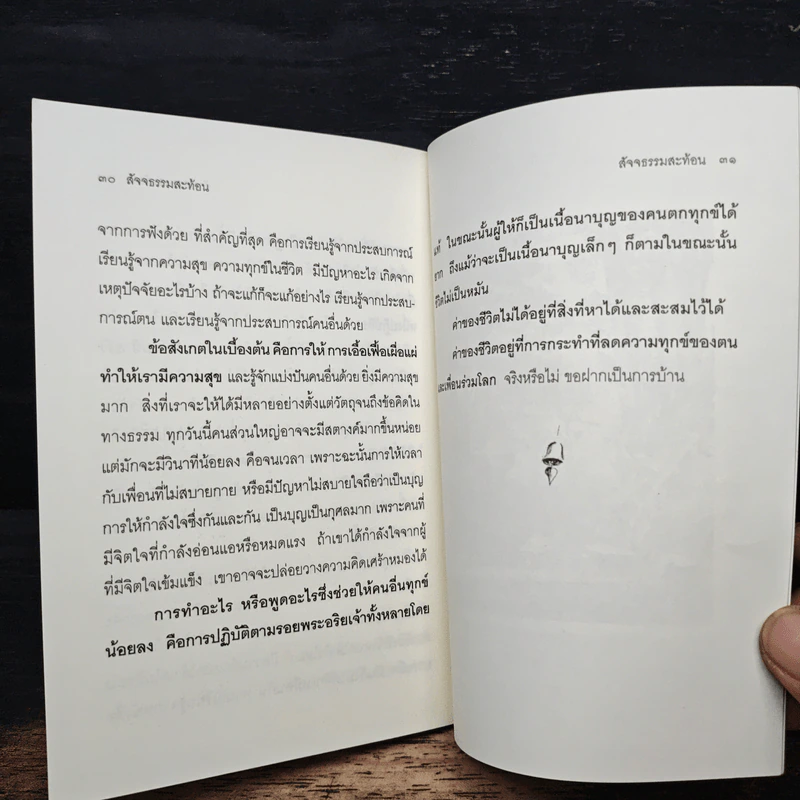 ๓๐ สัจจธรรมสะท้อน
จากการฟังด้วย ที่สำคัญที่สุด คือการเรียนรู้จากประสบการณ์
เรียนรู้จากความสุข ความทุกข์ในชีวิต มีปัญหาอะไร เกิดจาก
เหตุปัจจัยอะไรบ้าง ถ้าจะแก้ก็จะแก้อย่างไร เรียนรู้จากประสบ-
การณ์ตน และเรียนรู้จากประสบการณ์คนอื่นด้วย
ข้อสังเกตในเบื้องต้น คือการให้ การเอื้อเฟื้อเผื่อแผ่
ทำให้เรามีความสุข และรู้จักแบ่งปันคนอื่นด้วย ยิ่งมีความสุข
มาก สิ่งที่เราจะให้ได้มีหลายอย่างตั้งแต่วัตถุจนถึงข้อคิดใน
ทางธรรม ทุกวันนี้คนส่วนใหญ่อาจจะมีสตางค์มากขึ้นหน่อย
แต่มักจะมีวินาทีน้อยลง คือจนเวลา เพราะฉะนั้นการให้เวลา
กับเพื่อนที่ไม่สบายกาย หรือมีปัญหาไม่สบายใจถือว่าเป็นบุญ
การให้กำลังใจซึ่งกันและกัน เป็นบุญเป็นกุศลมาก เพราะคนที่
มีจิตใจที่กำลังอ่อนแอหรือหมดแรง ถ้าเขาได้กำลังใจจากผู้
ที่มีจิตใจเข้มแข็ง เขาอาจจะปล่อยวางความคิดเศร้าหมองได้
การทำอะไร หรือพูดอะไรซึ่งช่วยให้คนอื่นทุกข์
น้อยลง คือการปฏิบัติตามรอยพระอริยเจ้าทั้งหลายโดย
สัจจธรรมสะท้อน ๓๑
แท้ ในขณะนั้นผู้ให้ก็เป็นเนื้อนาบุญของคนตกทุกข์ได้
ยาก ถึงแม้ว่าจะเป็นเนื้อนาบุญเล็กๆ ก็ตามในขณะนั้น
ชีวิตไม่เป็นหมัน
ค่าของชีวิตไม่ได้อยู่ที่สิ่งที่หาได้และสะสมไว้ได้
ค่าของชีวิตอยู่ที่การกระทำที่ลดความทุกข์ของตน
และเพื่อนร่วมโลก จริงหรือไม่ ขอฝากเป็นการบ้าน